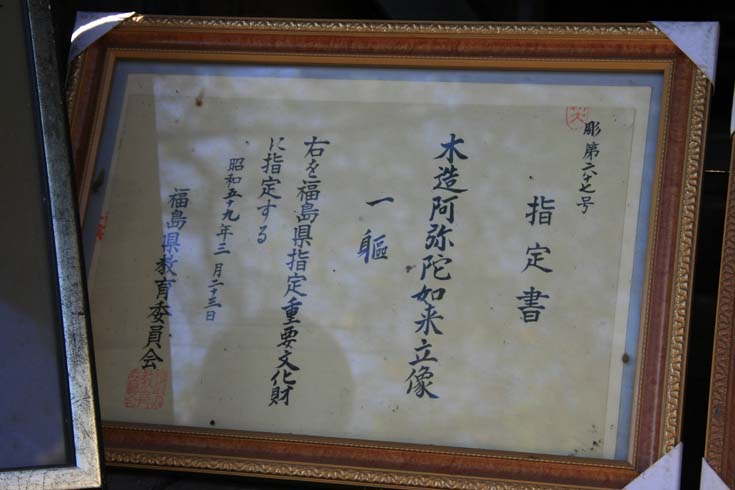 彫第六十七号
指定書
木造阿弥陀如来立像
一軀
右を福島県指定重要文化財
に指定する
昭和五十九年三月二十三日
福島県教育委員会